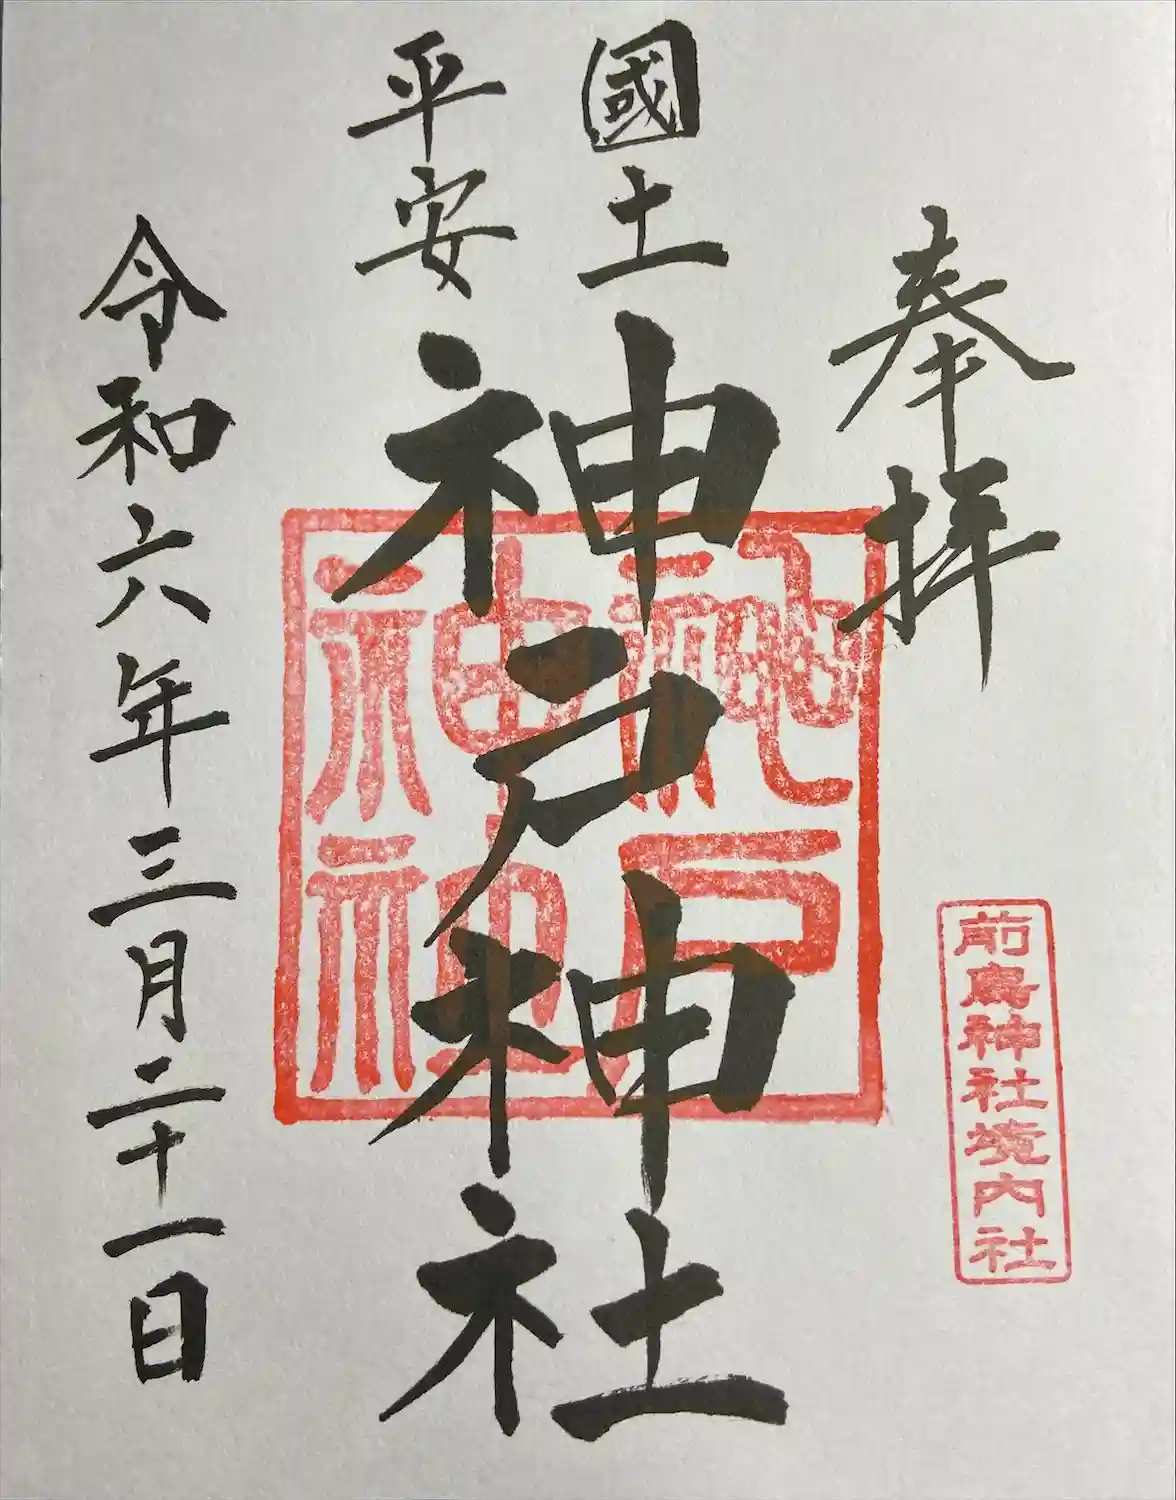 奉拝
國土
平安
神戸神社
令和六年三月二十一日
前鳥神社境内社